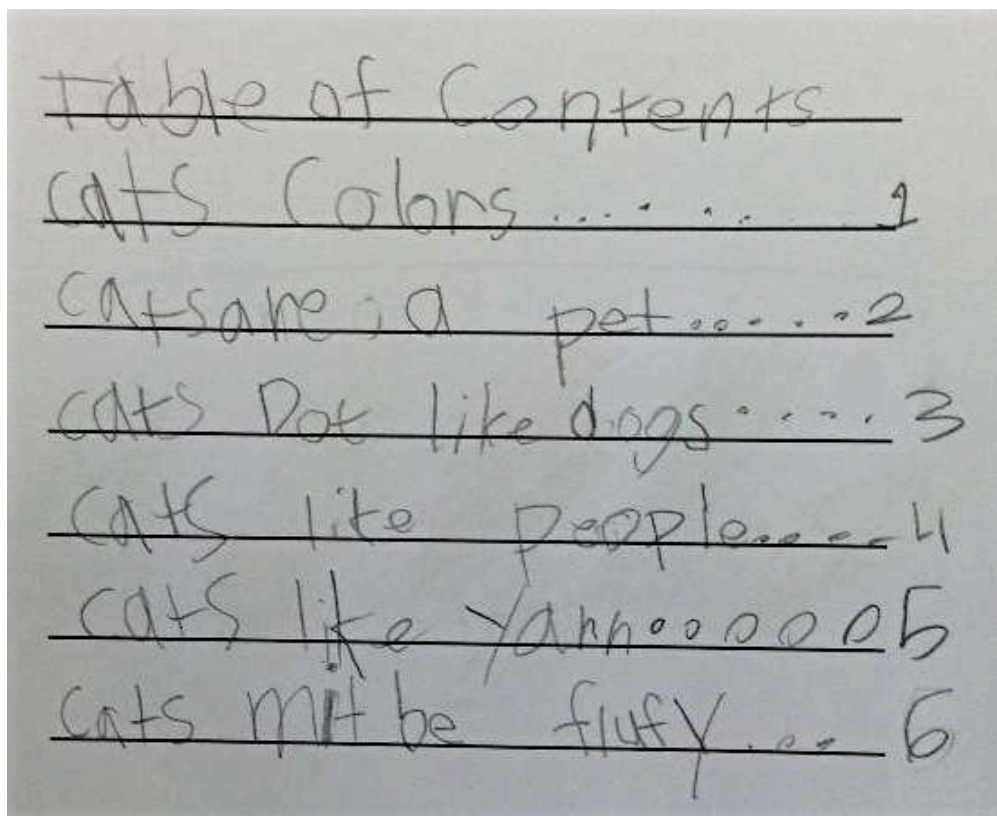 Table of Contents
cats Colors..........1
catsare a pet.......2
cats Dot like dogs.....3
cats like people.....4
cats like Yarn.ooooo5
cats mit be flufy....6